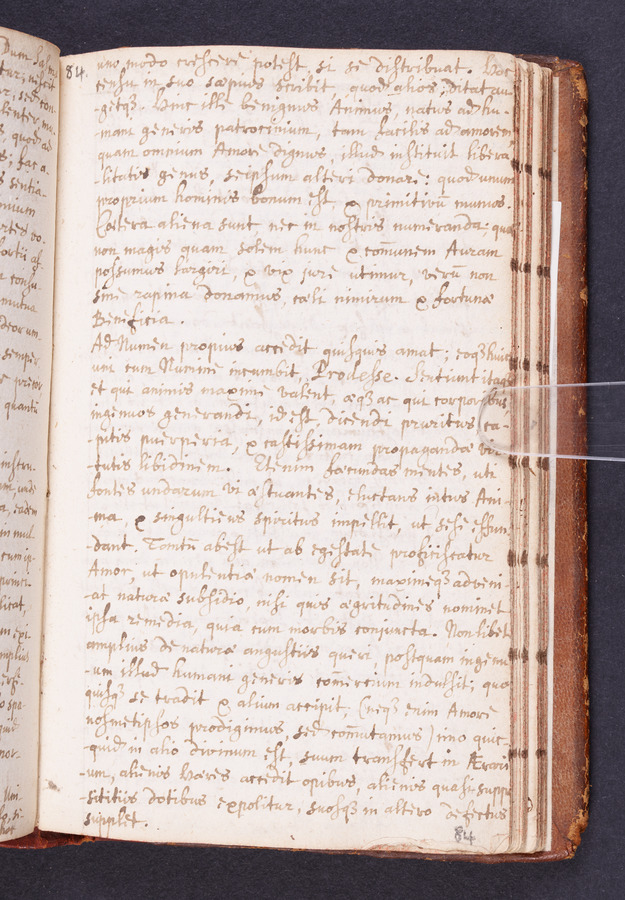 84.
uno modo crescere potest, si se distribuat. Hoc
censu in suo sæpius scribit, quod alios ditat au-
-getq3. Hinc ille benignus Animus, natus ad hu-
-mani generis patrocinium, tam facilis ad amorem
quam omnium Amore dignus, illud instituit libera-
-litatis genus, seipsum alteri donare: quod unum
proprium hominis bonum est, & primitivū munus.
Cætera aliena sunt, nec in nostris numeranda; quæ
non magis quam solem hunc & cōmunem Auram
possumus largiri, & vix jure utimur, verū non
sine rapina donamus, cæli nimirum & fortunæ
Beneficia.
Ad Numen propius accedit quisquis amat; eoq3
uni cum Numine incumbit, Prodesse. Sentiunt itaq3
et qui animis maxime valent, æq3 ac qui corporibus,
ingenuos generandi, id est dicendi pruritus, ca-
-pitis puerperia, & castissimam propagandæ vir-
-tutis libidinem. Etenim fæcundas mentes, uti
fontes undarum vi æstuantes, eluctans intus Ani-
-ma, & singultiens spiritus impellit, ut sese effun-
-dant. Tantū abest ut ab egestate proficiscatur
Amor, ut opulentiæ nomen sit, maximeq3 adveni-
-at naturæ subsidio, nisi quis ægritudines nominet
ipsa remedia, quia cum morbis conjuncta. Non libet
amplius de naturæ angustiis queri, postquam ingenu-
-um illud humani generis cōmercium indulsit; quo
quisq3 se tradit & alium accipit, (neq3 enim Amore
nosmetipsos prodigimus, sed cōmutamus) imo quic-
-quid in alio divinum est, suum transfert in Ærari-
-um, alienis Hæres accedit opibus, alienis quasi suppo-
-sititiis dotibus expolitur, suosq3 in altero defectus
supplet.
84